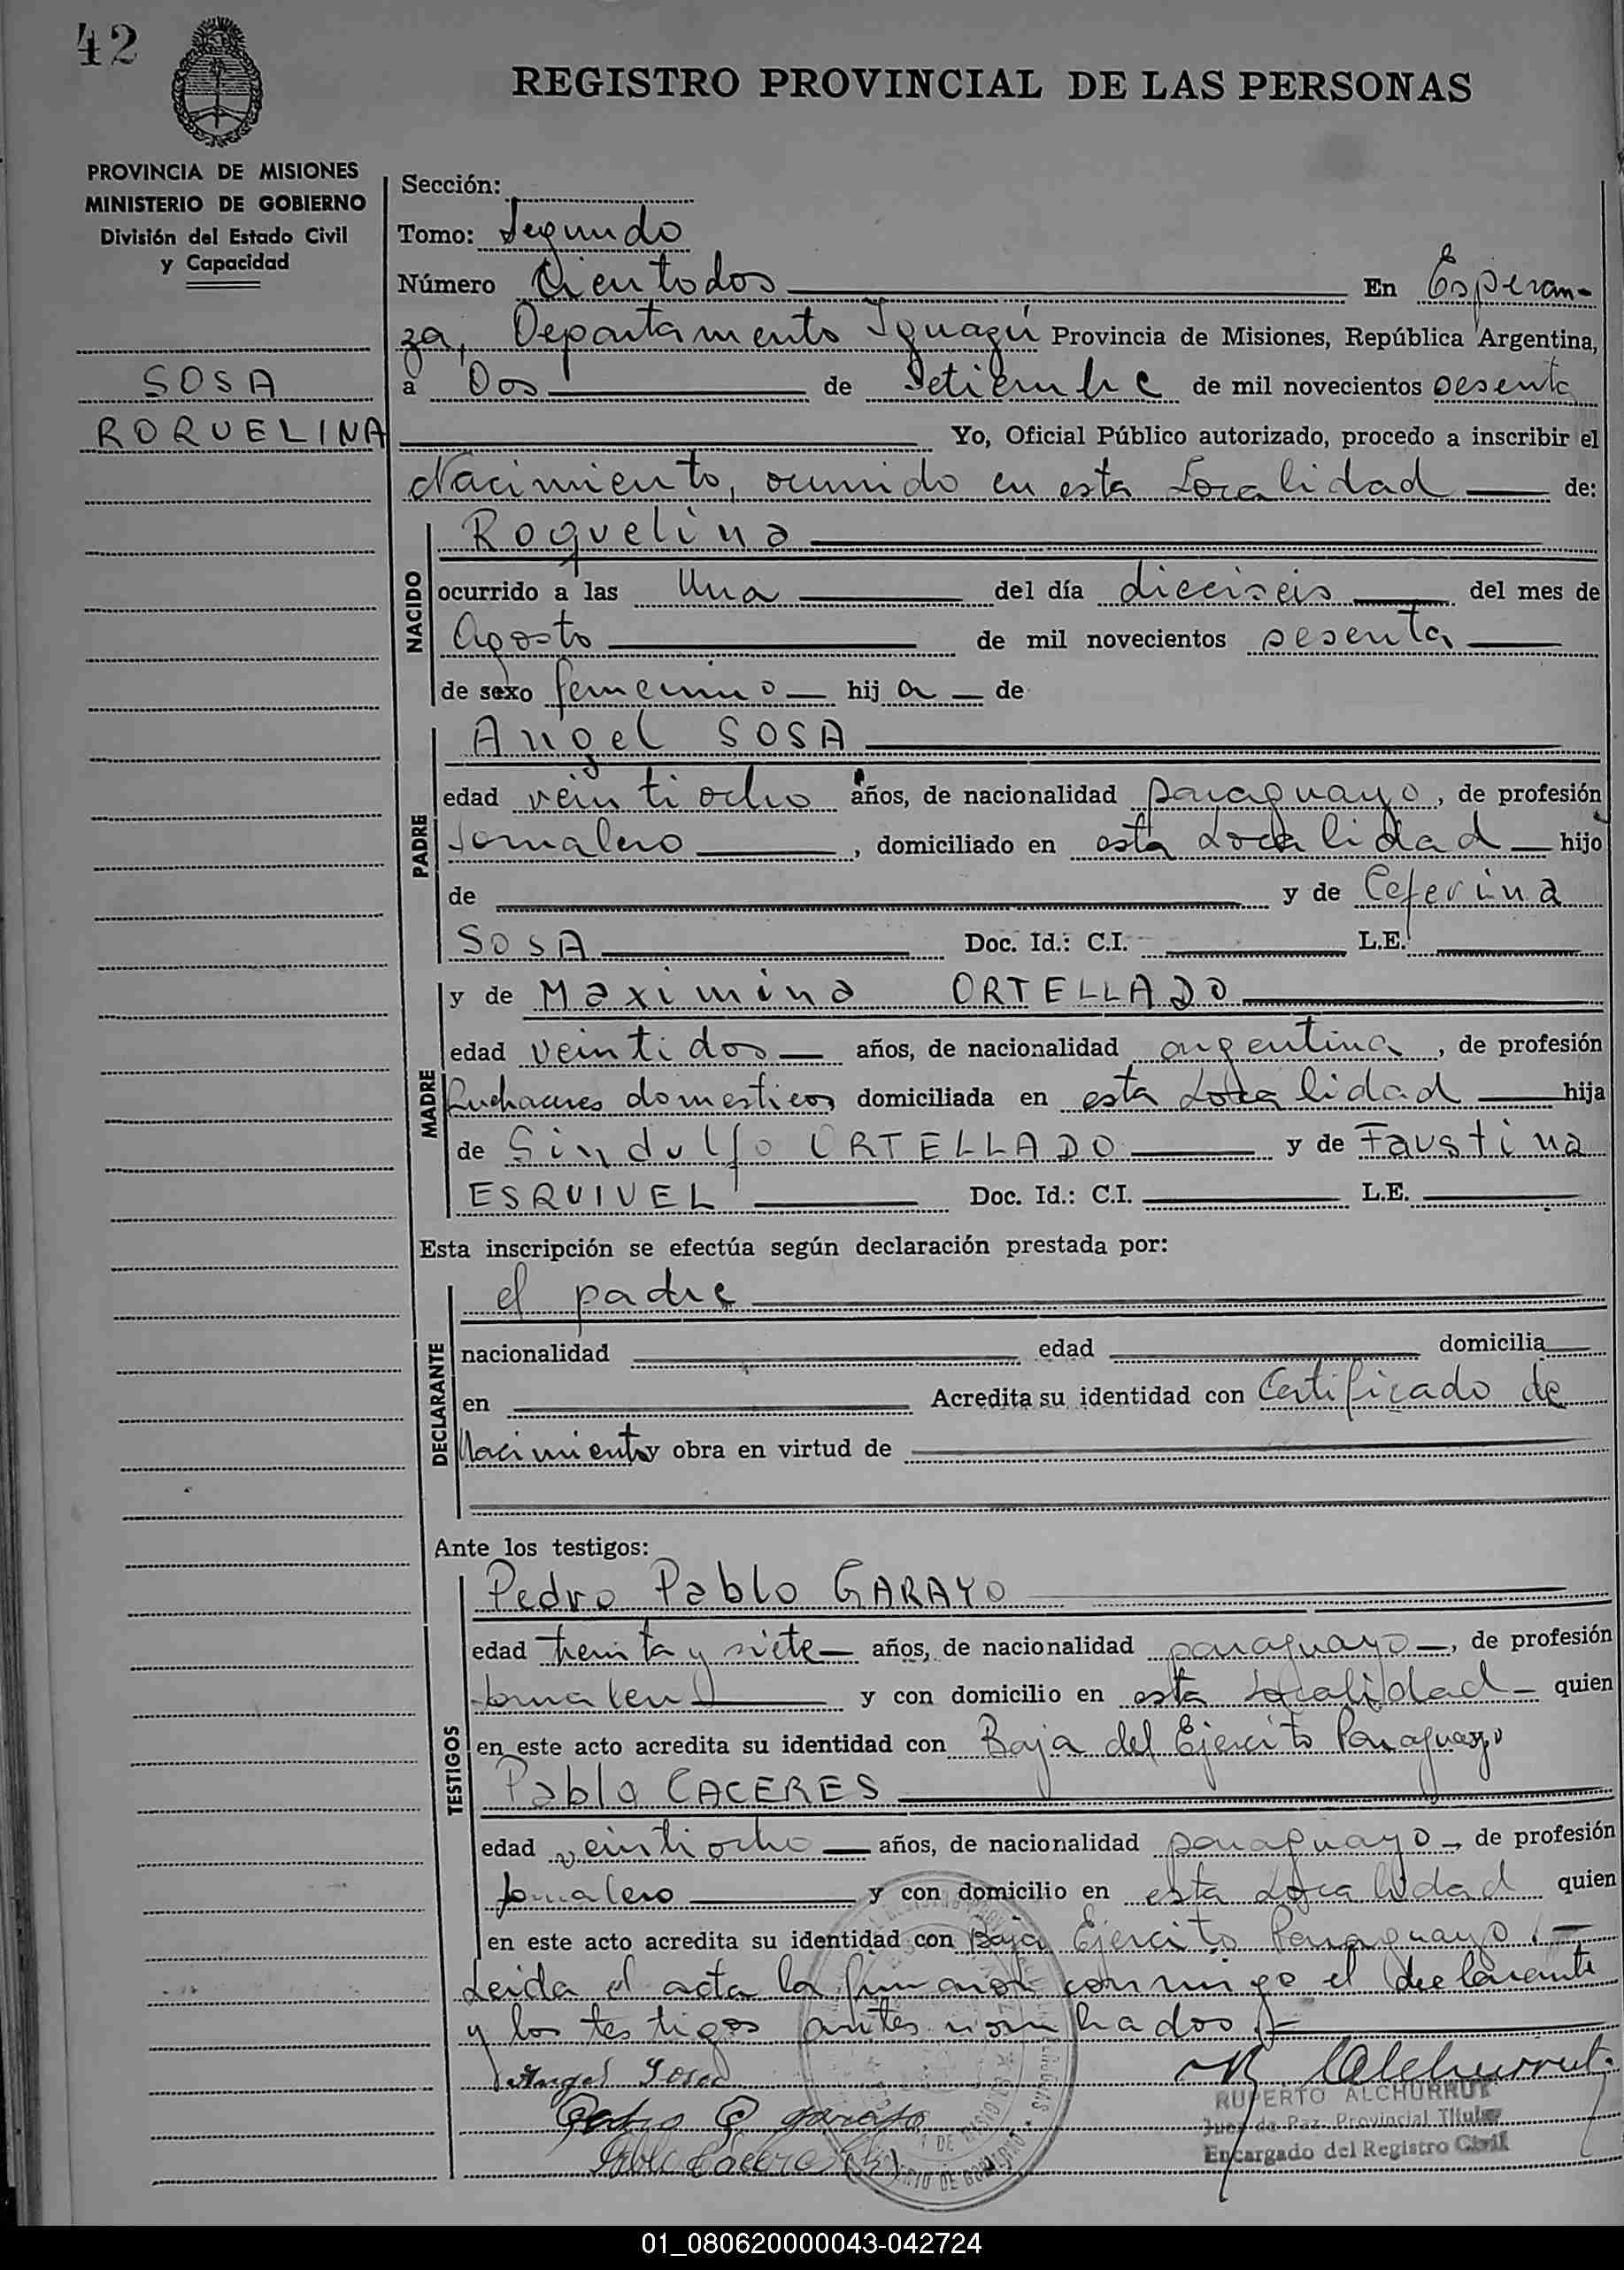 42
REGISTRO PROVINCIAL DE LAS PERSONAS
PROVINCIA DE MISIONES
MINISTERIO DE GOBIERNO
División del Estado Civil
y Capacidad
SOSA
ROQUELINA
Sección:
Tomo: Segundo
Número Cientodos En Esperan-
za, Departamento Iguazú Provincia de Misiones, República Argentina,
a Dos de Setiembre de mil novecientos sesenta
Yo, Oficial Público autorizado, procedo a inscribir el
Nacimiento, ocurrido en esta Localidad de:
NACIDO
Roquelina
ocurrido a las Una del día dieciseis del mes de
Agosto de mil novecientos sesenta
de sexo femenino hij a de
PADRE
Angel SOSA
edad veintiocho años, de nacionalidad paraguayo, de profesión
Jornalero, domiciliado en esta Localidad hijo
de y de Ceferina
SOSA Doc. Id.: C.I. L.E.
MADRE
y de Maximina ORTELLADO
edad veintidos años, de nacionalidad argentina, de profesión
Quehaceres domesticos domiciliada en esta Localidad hija
de Sindulfo ORTELLADO y de Faustina
ESQUIVEL Doc. Id.: C.I. L.E.
Esta inscripción se efectúa según declaración prestada por:
DECLARANTE
el padre
nacionalidad edad domicilia
en Acredita su identidad con Certificado de
Nacimiento y obra en virtud de
Ante los testigos:
TESTIGOS
Pedro Pablo GARAYO
edad treinta y siete años, de nacionalidad paraguayo, de profesión
Jornalero y con domicilio en esta Localidad quien
en este acto acredita su identidad con Baja del Ejercito Paraguayo
Pablo CACERES
edad veintiocho años, de nacionalidad paraguayo, de profesión
Jornalero y con domicilio en esta Localidad quien
en este acto acredita su identidad con Baja Ejercito Paraguayo.-
Leida el acta la firmaron conmigo el declarante
y los testigos antes nombrados.-
Angel Sosa
Pedro P. garayo
Pablo Cacere
RUPERTO ALCHURRUT
Juez de Paz Provincial Titular
Encargado del Registro Civil
01_080620000043-042724